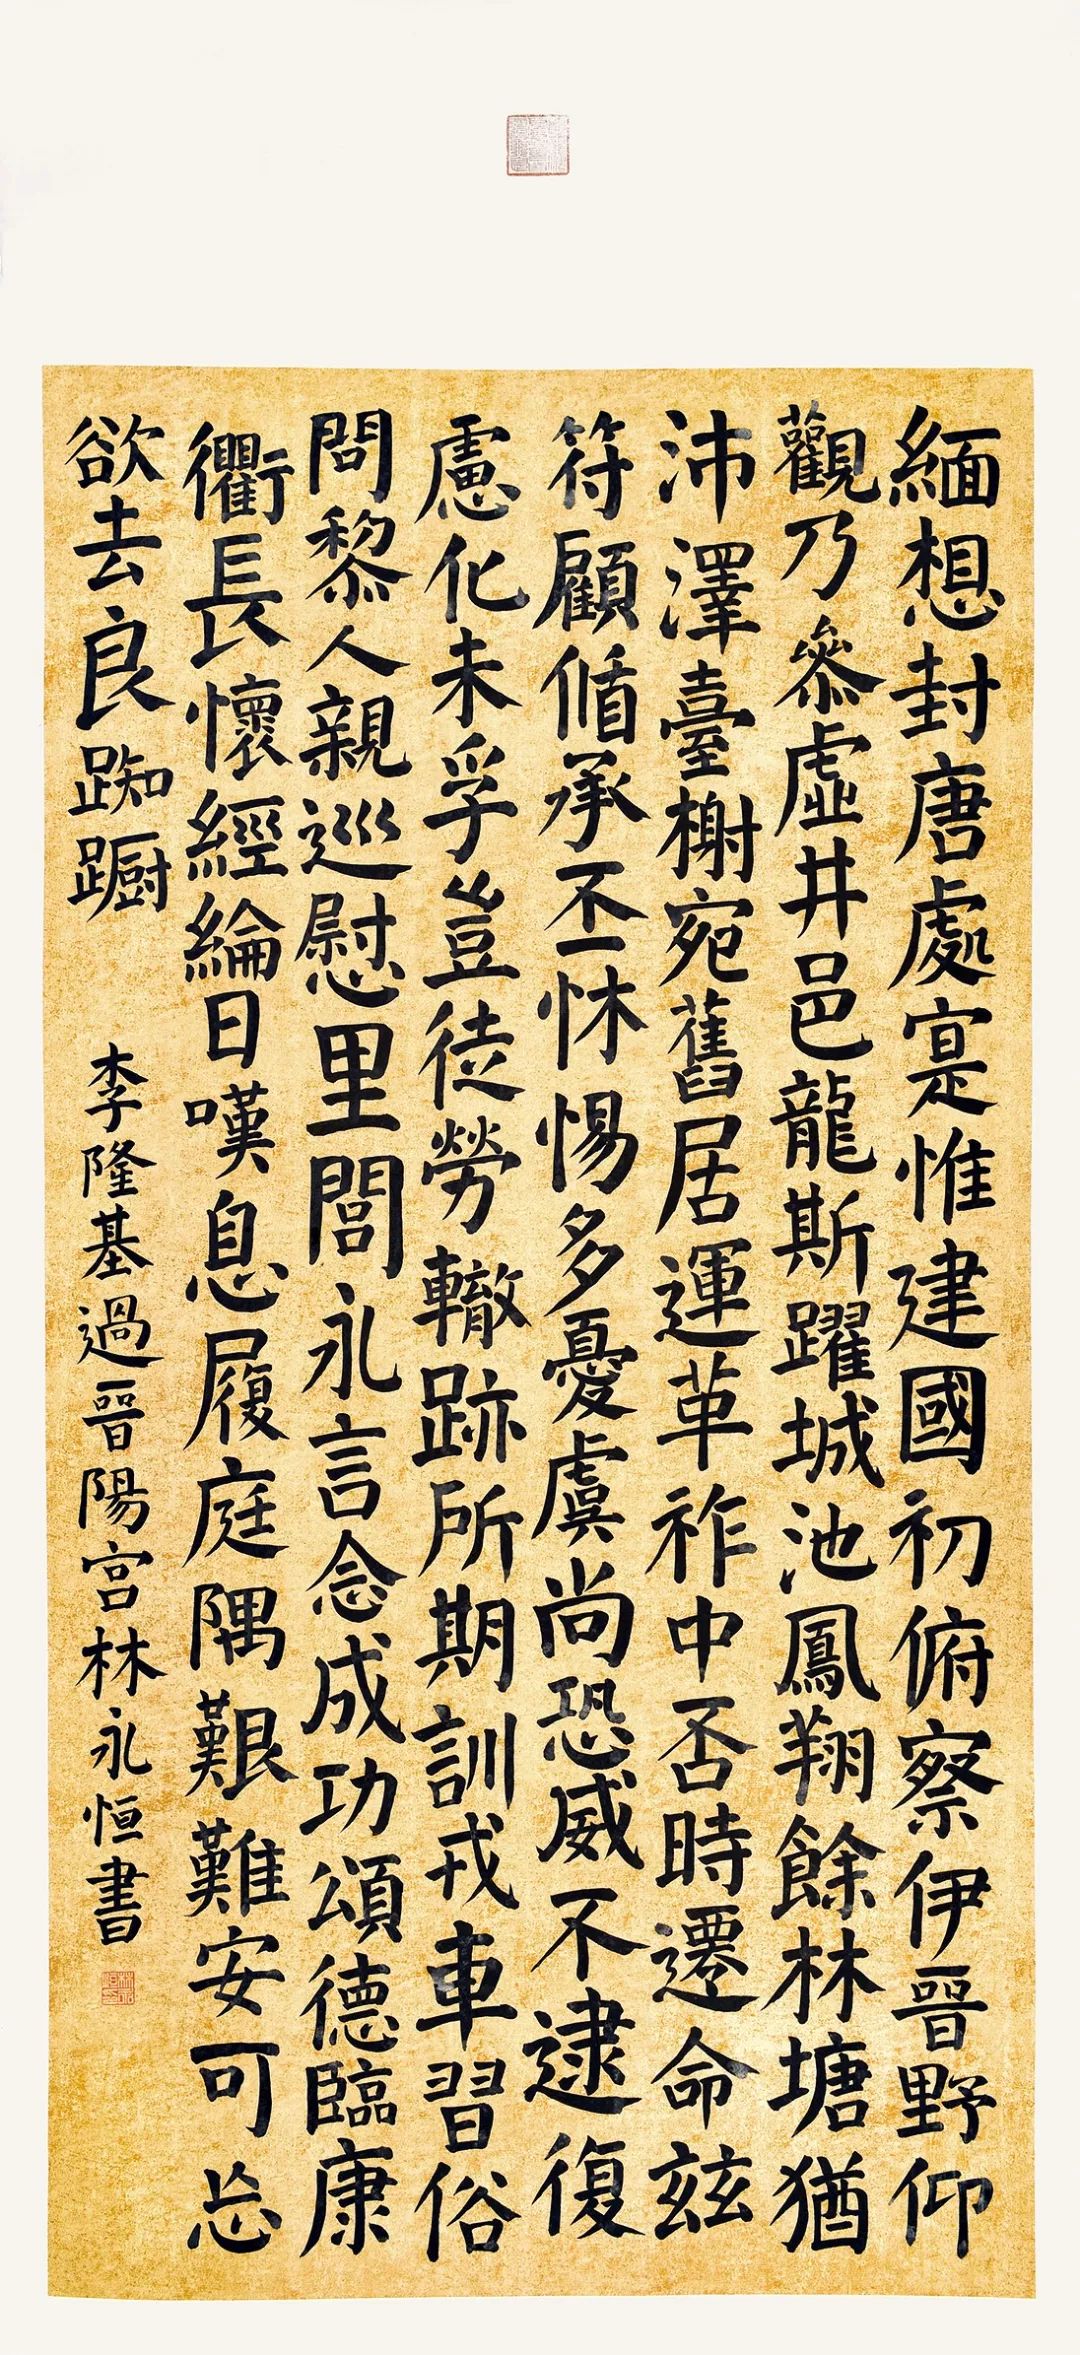 緬想封唐處寔惟建國初俯察伊晉野仰
觀乃參虛井邑龍斯躍城池鳳翔餘林塘猶
沛澤臺榭宛舊居運革祚中否時遷命茲
符顧循承丕休惕多憂虞尚恐威不逮復
慮化未孚豈徒勞轍跡所期訓戎車習俗
問黎人親巡慰里閭永言念成功頌德臨康
衢長懷經綸日嘆息履庭隅艱難安可忘
欲去良踟躕
李隆基過晉陽宮林永恒書